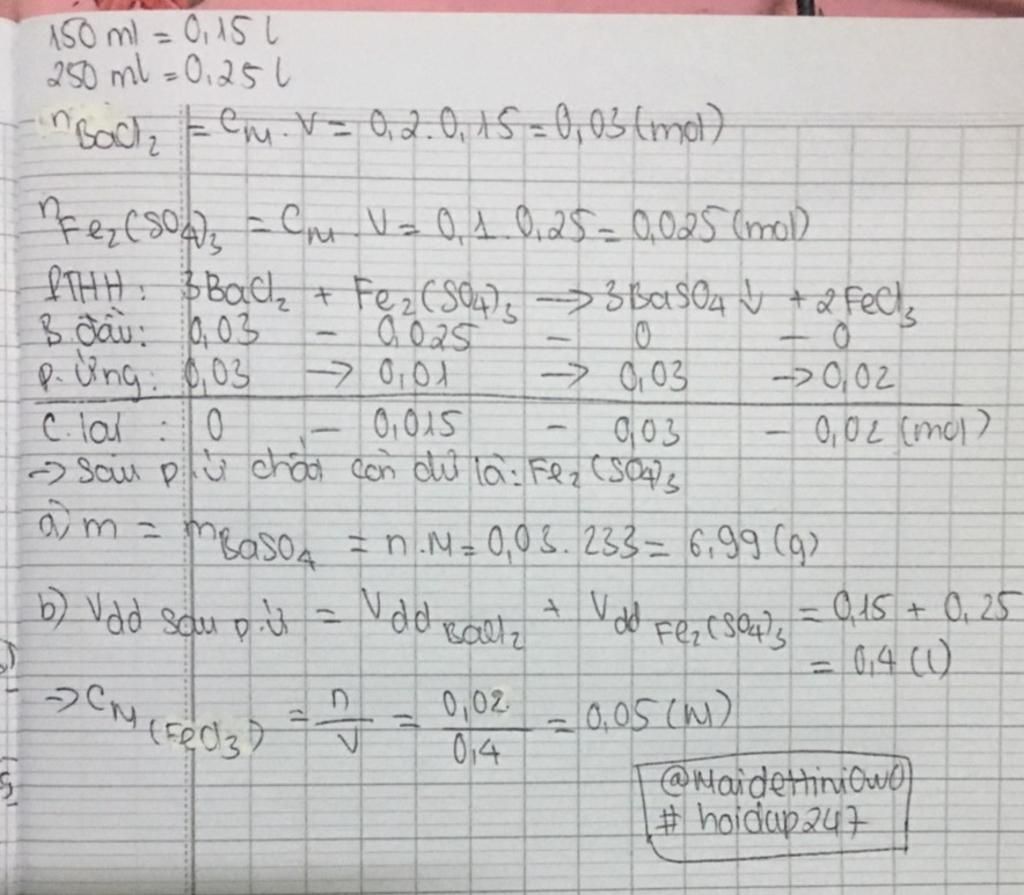 150 ml = 0,15 l
250 ml = 0,25 l
nBaCl₂ = CM . V = 0,2 . 0,15 = 0,03 (mol)
nFe₂(SO₄)₃ = CM . V = 0,1 . 0,25 = 0,025 (mol)
PTHH : 3BaCl₂ + Fe₂(SO₄)₃ → 3BaSO₄ ↓ + 2FeCl₃
B. đầu : 0,03 - 0,025 - 0 - 0
P. ứng : 0,03 → 0,01 → 0,03 → 0,02
C. lại : 0 - 0,015 - 0,03 - 0,02 (mol)
→ Sau p.ứ chất còn dư là : Fe₂(SO₄)₃
a) m = mBaSO₄ = n . M = 0,03 . 233 = 6,99 (g)
b) Vdd sau p.ứ = Vdd BaCl₂ + Vdd Fe₂(SO₄)₃ = 0,15 + 0,25
= 0,4 (l)
⇒ CM (FeCl₃) = n/V = 0,02/0,4 = 0,05 (M)
@MaidettiniOwO
# hoidap247